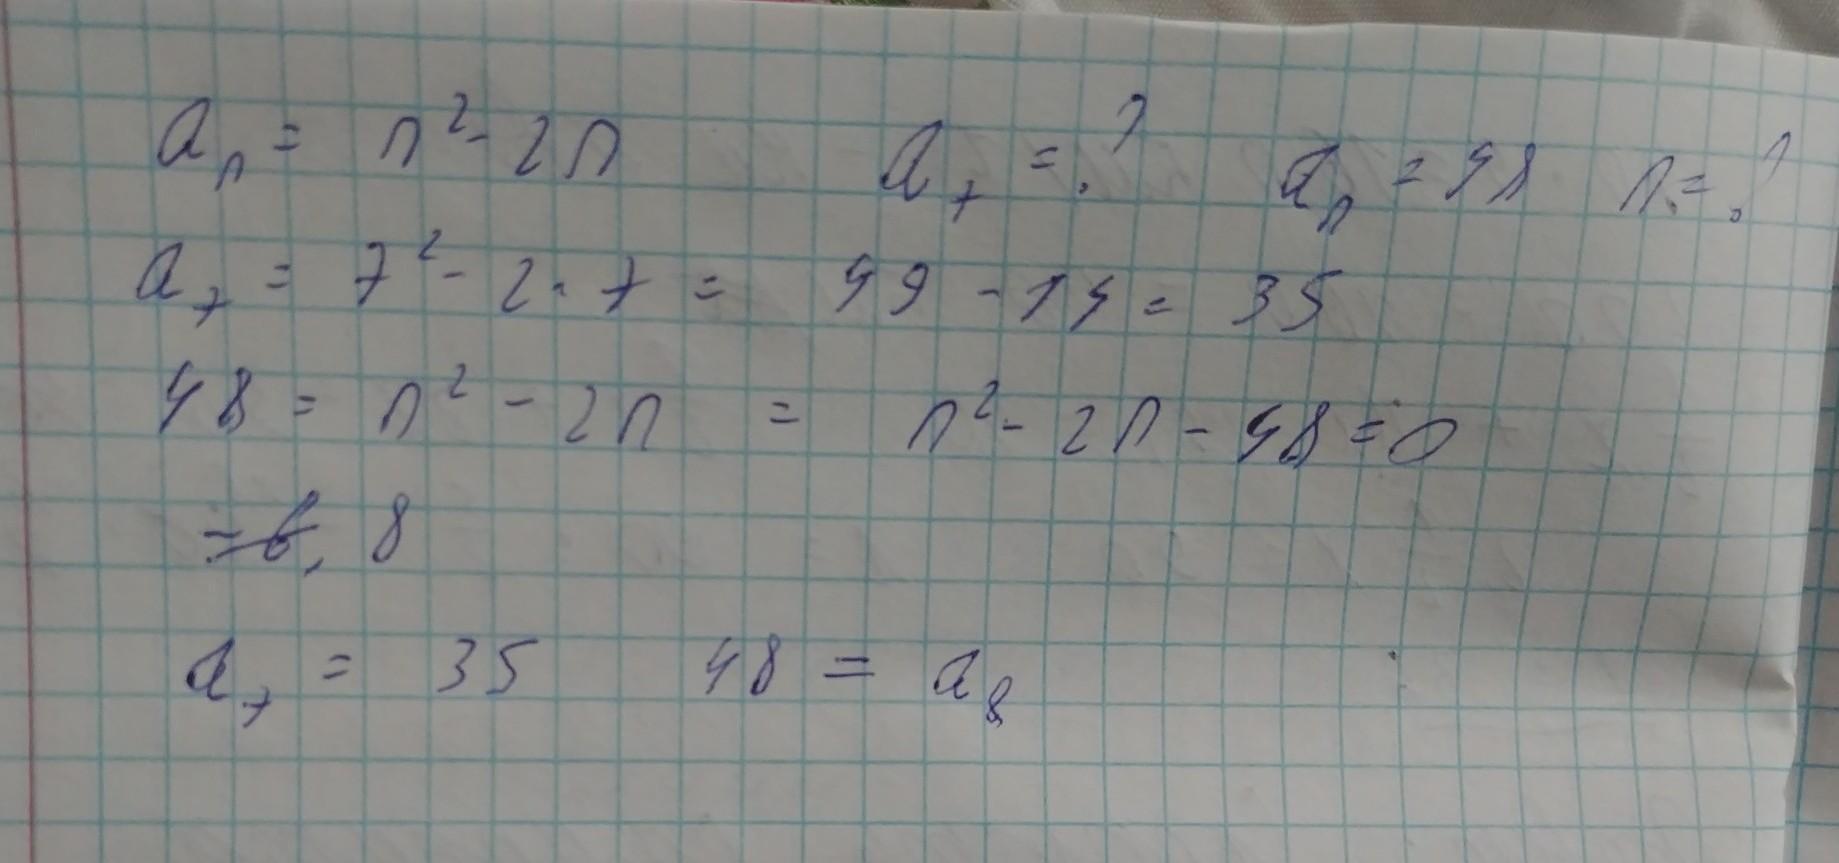 aₙ = n² - 2n a₇ = ? aₙ = 48 n = ?
a₇ = 7² - 2 · 7 = 49 - 14 = 35
48 = n² - 2n = n² - 2n - 48 = 0
= 6, 8
a₇ = 35 48 = a₈